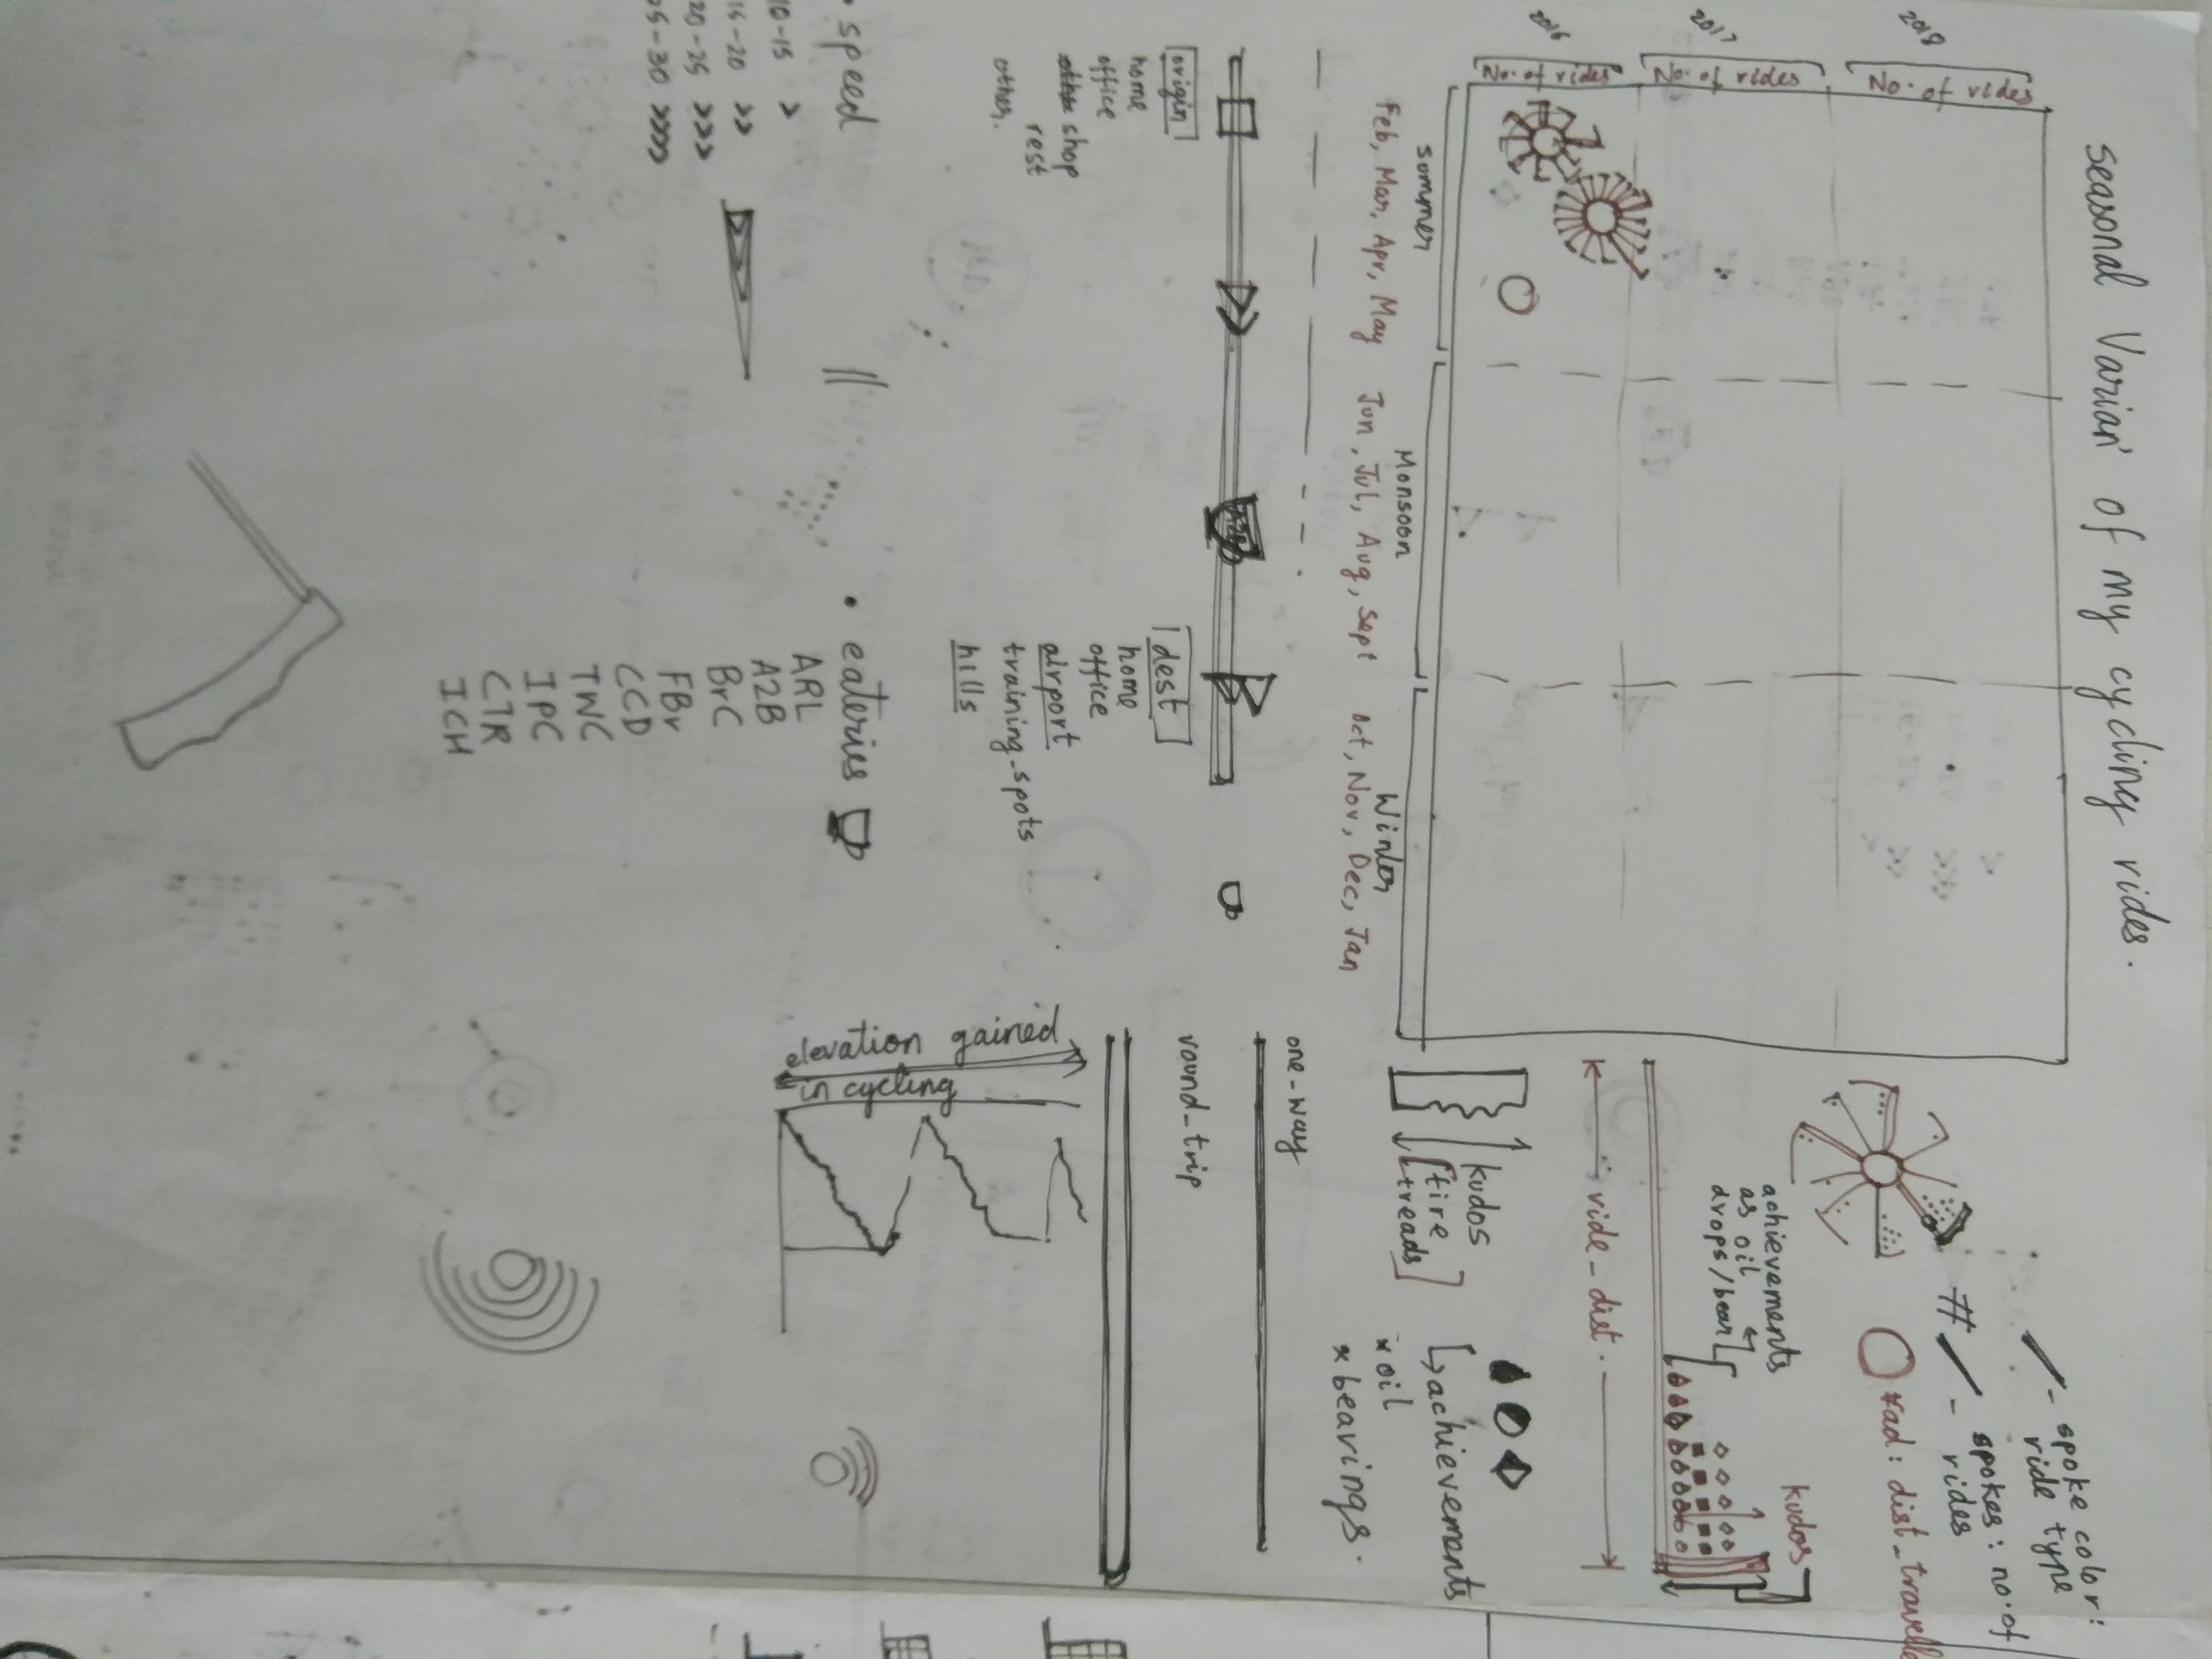 Seasonal Varian' of my cycling rides.
2018
No. of rides
2017
No. of rides
2016
No. of rides
Summer
Monsoon
Winter
Feb, Mar, Apr, May
Jun, Jul, Aug, Sept
Oct, Nov, Dec, Jan
/ - spoke color:
ride type
# / - spokes: no. of
rides
rad: dist_travelle
achievements
as oil
drops/bear
kudos
ride_dist.
kudos
[tire
treads]
achievements
x oil
x bearings.
one-way
round_trip
origin
home
office
shop
rest
other.
dest
home
office
airport
training_spots
hills
• speed
10-15 >
15-20 >>
20-25 >>>
25-30 >>>>
• eateries
ARL
A2B
BrC
FBr
CCD
TWC
IPC
CTR
ICH
elevation gained
in cycling